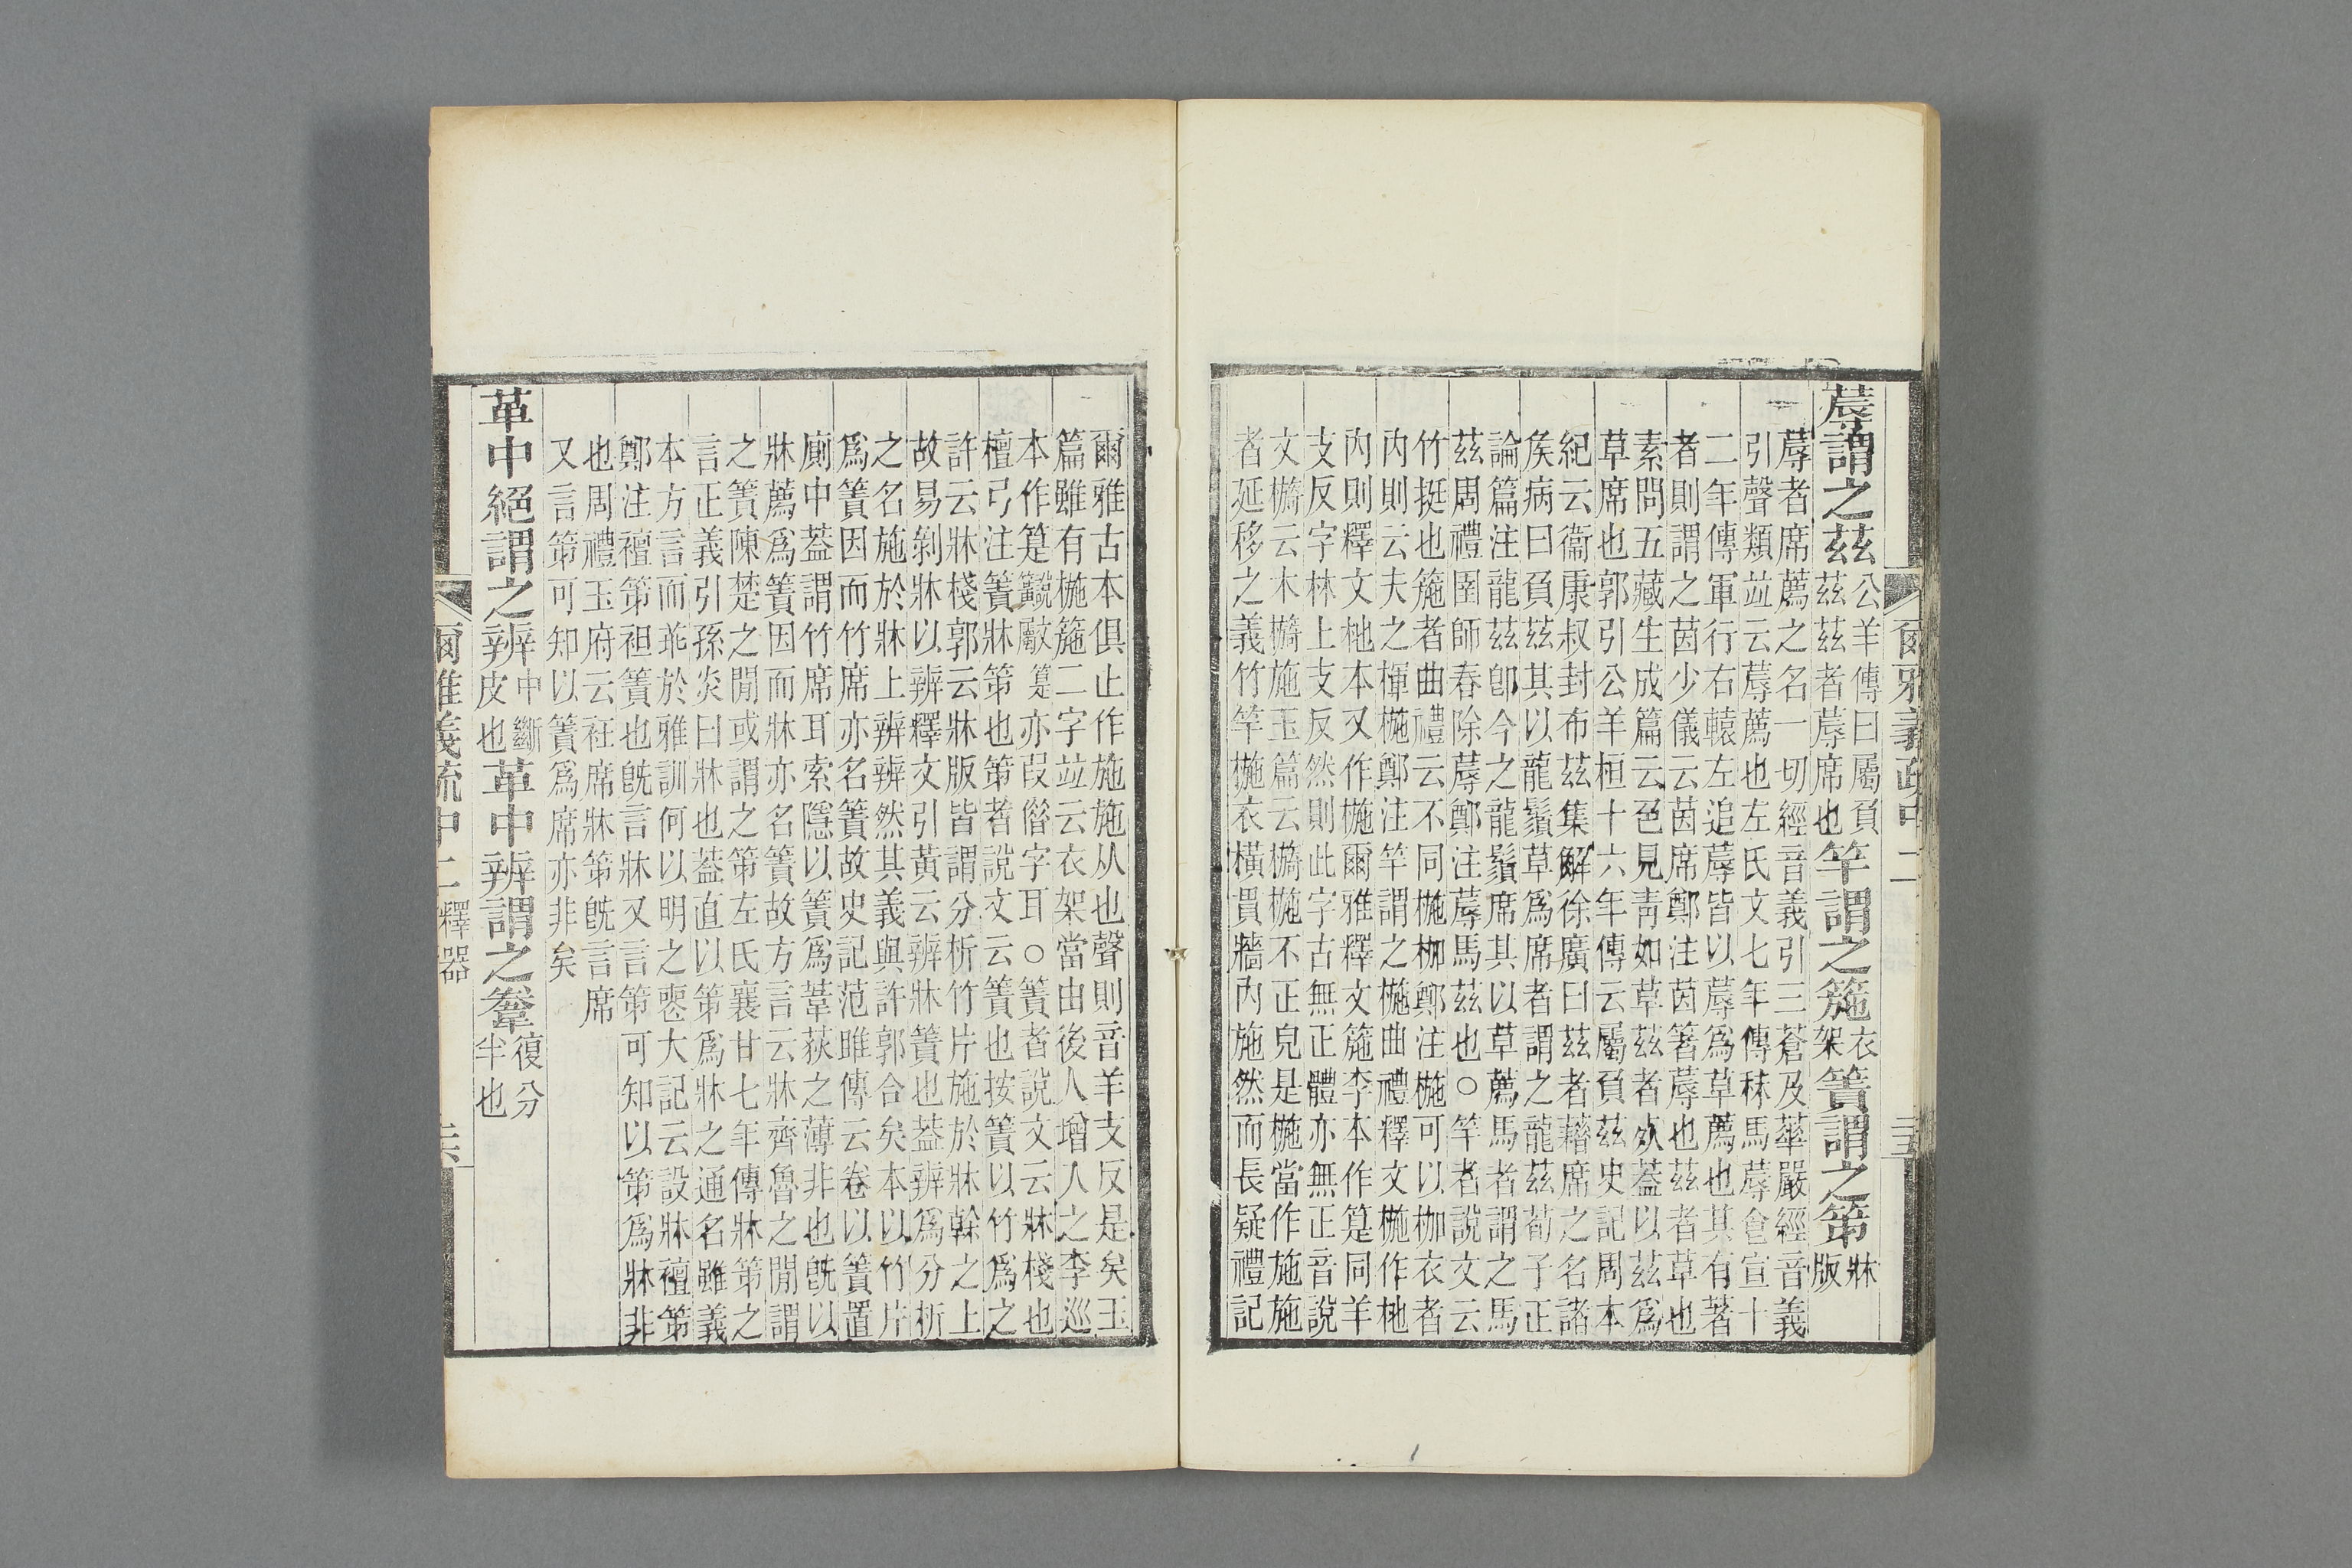 蓐謂之茲公羊傳曰屬負茲茲者蓐席也竿謂之箷衣架簀謂之笫牀版
蓐者席薦之名一切經音義引三蒼及華嚴經音義
引聲類竝云蓐薦也左氏文七年傳秣馬蓐食宣十
二年傳軍行右轅左追蓐皆以蓐爲草薦也其有著
者則謂之茵少儀云茵席鄭注茵著蓐也茲者草也
素問五藏生成篇云色見青如草茲者死蓋以茲爲
草席也郭引公羊桓十六年傳云屬負茲史記周本
紀云衞康叔封布茲集解徐廣曰茲者藉席之名諸
侯病曰負茲其以龍鬚草爲席者謂之龍茲荀子正
論篇注龍茲卽今之龍鬚席其以草薦馬者謂之馬
茲周禮圉師春除蓐鄭注蓐馬茲也○竿者說文云
竹挺也箷者曲禮云不同椸枷鄭注椸可以枷衣者
內則云夫之楎椸鄭注竿謂之椸曲禮釋文椸作杝
內則釋文杝本又作椸爾雅釋文箷李本作箟同羊
支反字林上支反然則此字古無正體亦無正音說
文檹云木檹施玉篇云檹椸不正皃是椸當作施施
者延移之義竹竿椸衣橫貫牆內施然而長疑禮記
爾雅古本俱止作施施从也聲則音羊支反是矣玉
篇雖有椸箷二字竝云衣架當由後人增入之李巡
本作箟亦叚僭字耳○簀者說文云牀棧也
檀弓注簀牀笫也笫者說文云簀也按簀以竹爲之
許云牀棧郭云牀版皆謂分析竹片施於牀榦之上
故易剝牀以辨釋文引黃云辨牀簀也葢辨爲分析
之名施於牀上辨辨然其義與許郭合矣本以竹片
爲簀因而竹席亦名簀故史記范雎傳云卷以簀置
廁中葢謂竹席耳索隱以簀爲葦荻之薄非也旣以
牀薦爲簀因而牀亦名簀故方言云牀齊魯之閒謂
之簀陳楚之閒或謂之笫左氏襄廿七年傳牀笫之
言正義引孫炎曰牀也葢直以笫爲牀之通名雖義
本方言而乖於雅訓何以明之喪大記云設牀襢笫
鄭注襢笫袒簀也旣言牀又言笫可知以笫爲牀非
也周禮玉府云衽席牀笫旣言席
又言笫可知以簀爲席亦非矣
革中絕謂之辨中斷皮也革中辨謂之韏復分半也
爾雅義疏中二 釋器